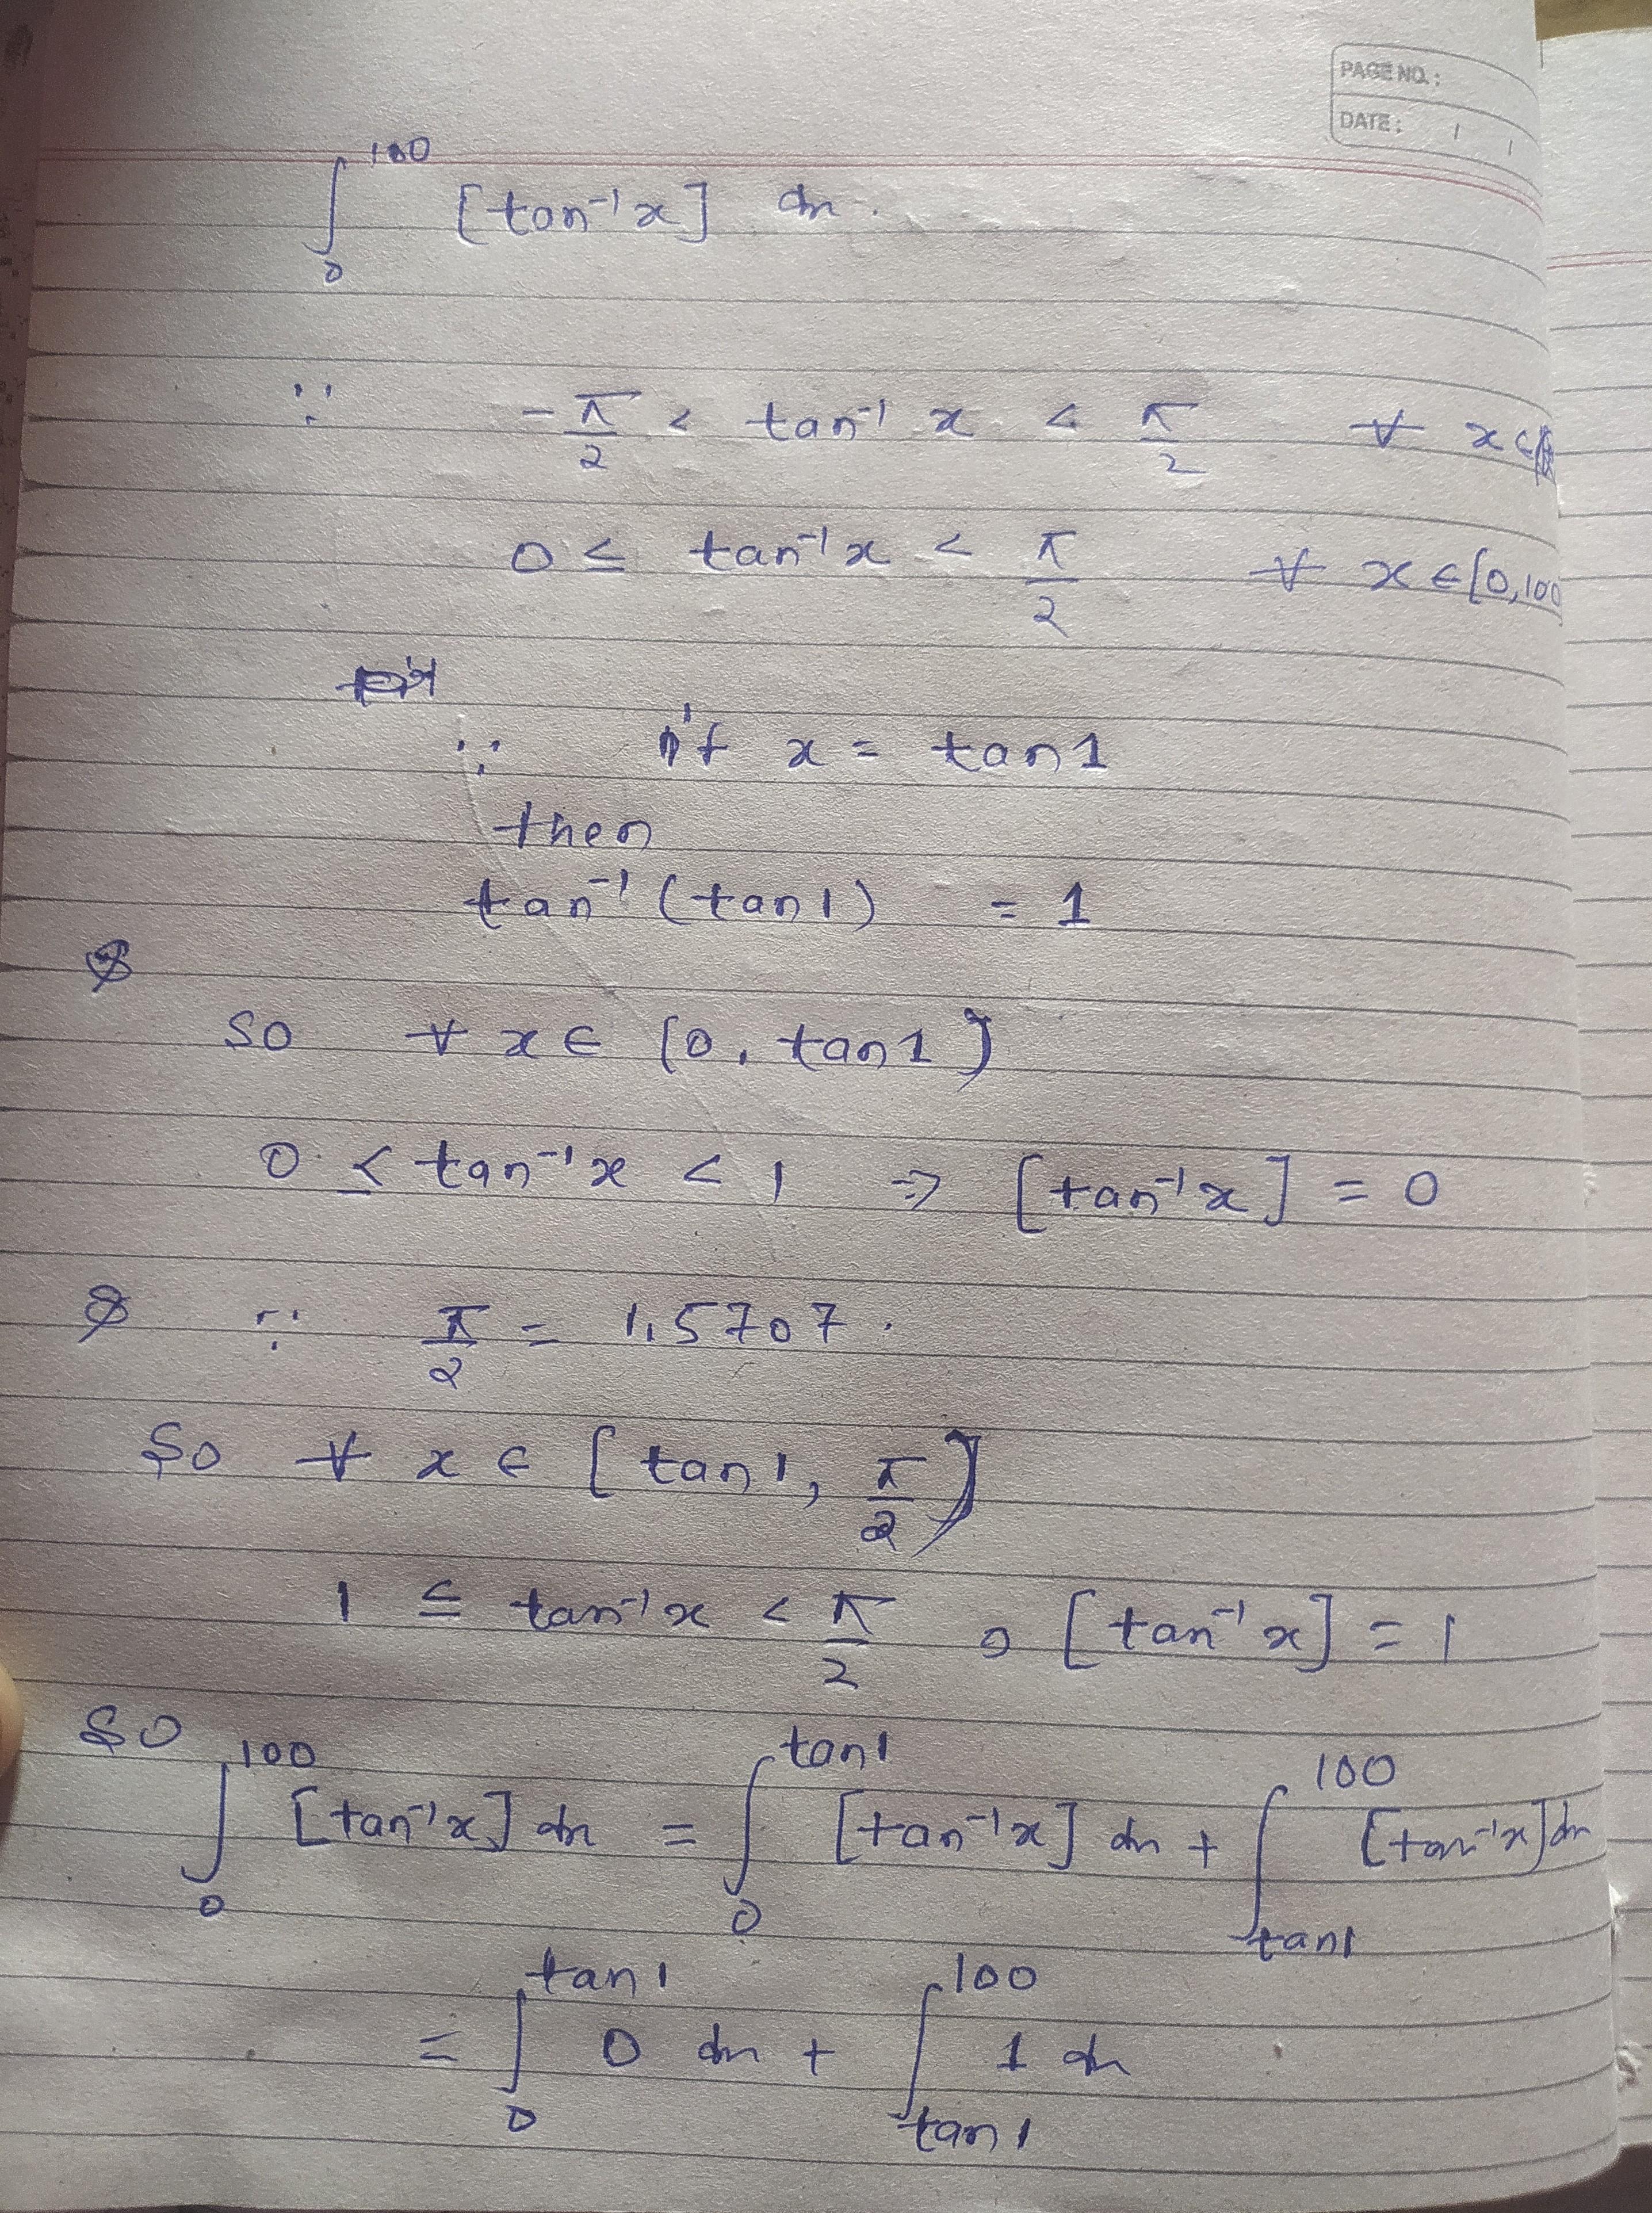 PAGE NO.:
DATE: / /
∫₀¹⁰⁰ [tan⁻¹x] dx.
∵ -π/2 < tan⁻¹ x < π/2 ∀ x ∈
0 ≤ tan⁻¹x < π/2 ∀ x ∈ [0, 100
∵ if x = tan 1
then
tan⁻¹ (tan 1) = 1
so ∀ x ∈ [0, tan 1)
0 ≤ tan⁻¹x < 1 ⇒ [tan⁻¹x] = 0
∵ π/2 = 1.5707.
So ∀ x ∈ [tan 1, π/2)
1 ≤ tan⁻¹x < π/2 ⇒ [tan⁻¹ x] = 1
so
∫₀¹⁰⁰ [tan⁻¹x] dx = ∫₀^(tan 1) [tan⁻¹x] dx + ∫_(tan 1)^100 [tan⁻¹x] dx
= ∫₀^(tan 1) 0 dx + ∫_(tan 1)^100 1 dx